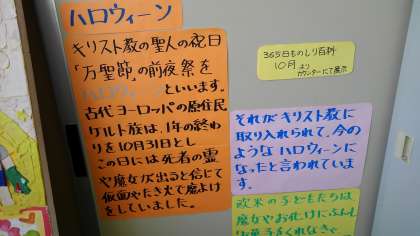 ハロウィーン
キリスト教の聖人の祝日
「万聖節」の前夜祭を
ハロウィーンといいます。
古代ヨーロッパの原住民
ケルト族は、1年の終わ
りを10月31日とし
この日には死者の霊
や魔女が出ると信じて
仮面やたき火で魔よけ
をしていました。
365日ものしり百科
10月 より
カウンターにて展示
それがキリスト教に
取り入れられて、今の
ようなハロウィーンに
なったと言われていま
す。
欧米の子どもたちは
魔女やお化けにふんし